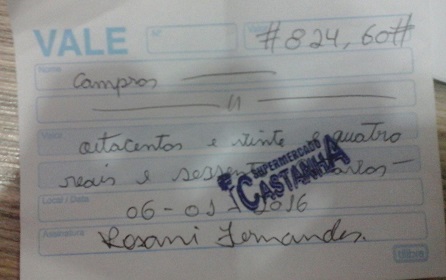 VALE
Nº
Valor #824,60#
Nome
Compras
"
Valor
oitocentos e vinte e quatro
reais e sessenta
SUPERMERCADO
CASTANHA
Local / Data
06-01-2016
Assinatura
Rosani Fernandes.
tilibra